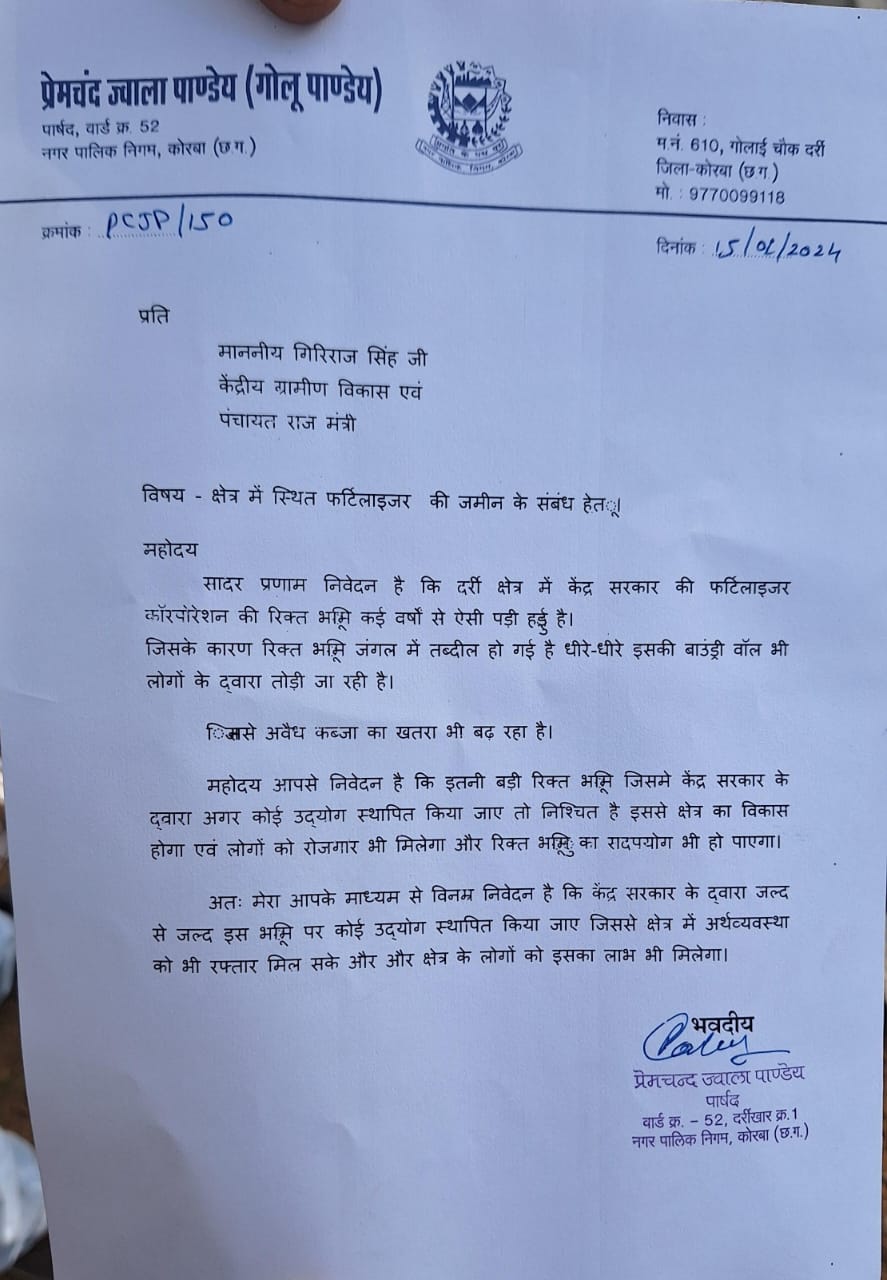 प्रेमचंद ज्वाला पाण्डेय (गोलू पाण्डेय)
पार्षद, वार्ड क्र. 52
नगर पालिक निगम, कोरबा (छ.ग.)
निवास :
म.नं. 610, गोलाई चौक दर्री
जिला-कोरबा (छ.ग.)
मो. : 9770099118
क्रमांक : PCJP/150
दिनांक : 15/01/2024
प्रति
माननीय गिरिराज सिंह जी
केंद्रीय ग्रामीण विकास एवं
पंचायत राज मंत्री
विषय - क्षेत्र में स्थित फर्टिलाइजर की जमीन के संबंध हेतू।
महोदय
सादर प्रणाम निवेदन है कि दर्री क्षेत्र में केंद्र सरकार की फर्टिलाइजर
कॉरपोरेशन की रिक्त भूमि कई वर्षों से ऐसी पड़ी हुई है।
जिसके कारण रिक्त भूमि जंगल में तब्दील हो गई है धीरे-धीरे इसकी बाउंड्री वॉल भी
लोगों के द्वारा तोड़ी जा रही है।
जिससे अवैध कब्जा का खतरा भी बढ़ रहा है।
महोदय आपसे निवेदन है कि इतनी बड़ी रिक्त भूमि जिसमे केंद्र सरकार के
द्वारा अगर कोई उद्योग स्थापित किया जाए तो निश्चित है इससे क्षेत्र का विकास
होगा एवं लोगों को रोजगार भी मिलेगा और रिक्त भूमि का सदुपयोग भी हो पाएगा।
अतः मेरा आपके माध्यम से विनम्र निवेदन है कि केंद्र सरकार के द्वारा जल्द
से जल्द इस भूमि पर कोई उद्योग स्थापित किया जाए जिससे क्षेत्र में अर्थव्यवस्था
को भी रफ्तार मिल सके और और क्षेत्र के लोगों को इसका लाभ भी मिलेगा।
भवदीय
प्रेमचन्द ज्वाला पाण्डेय
पार्षद
वार्ड क्र. - 52, दर्रीखार क्र.1
नगर पालिक निगम, कोरबा (छ.ग.)